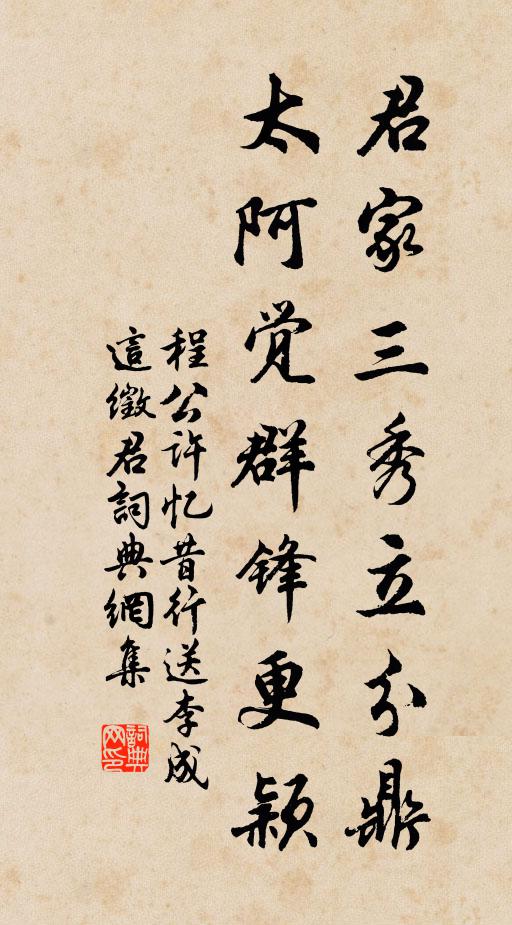 君家三秀立分鼎
太阿觉群锋更颖
程公许忆昔行送李成
這徵君詞典網集
詞典网印